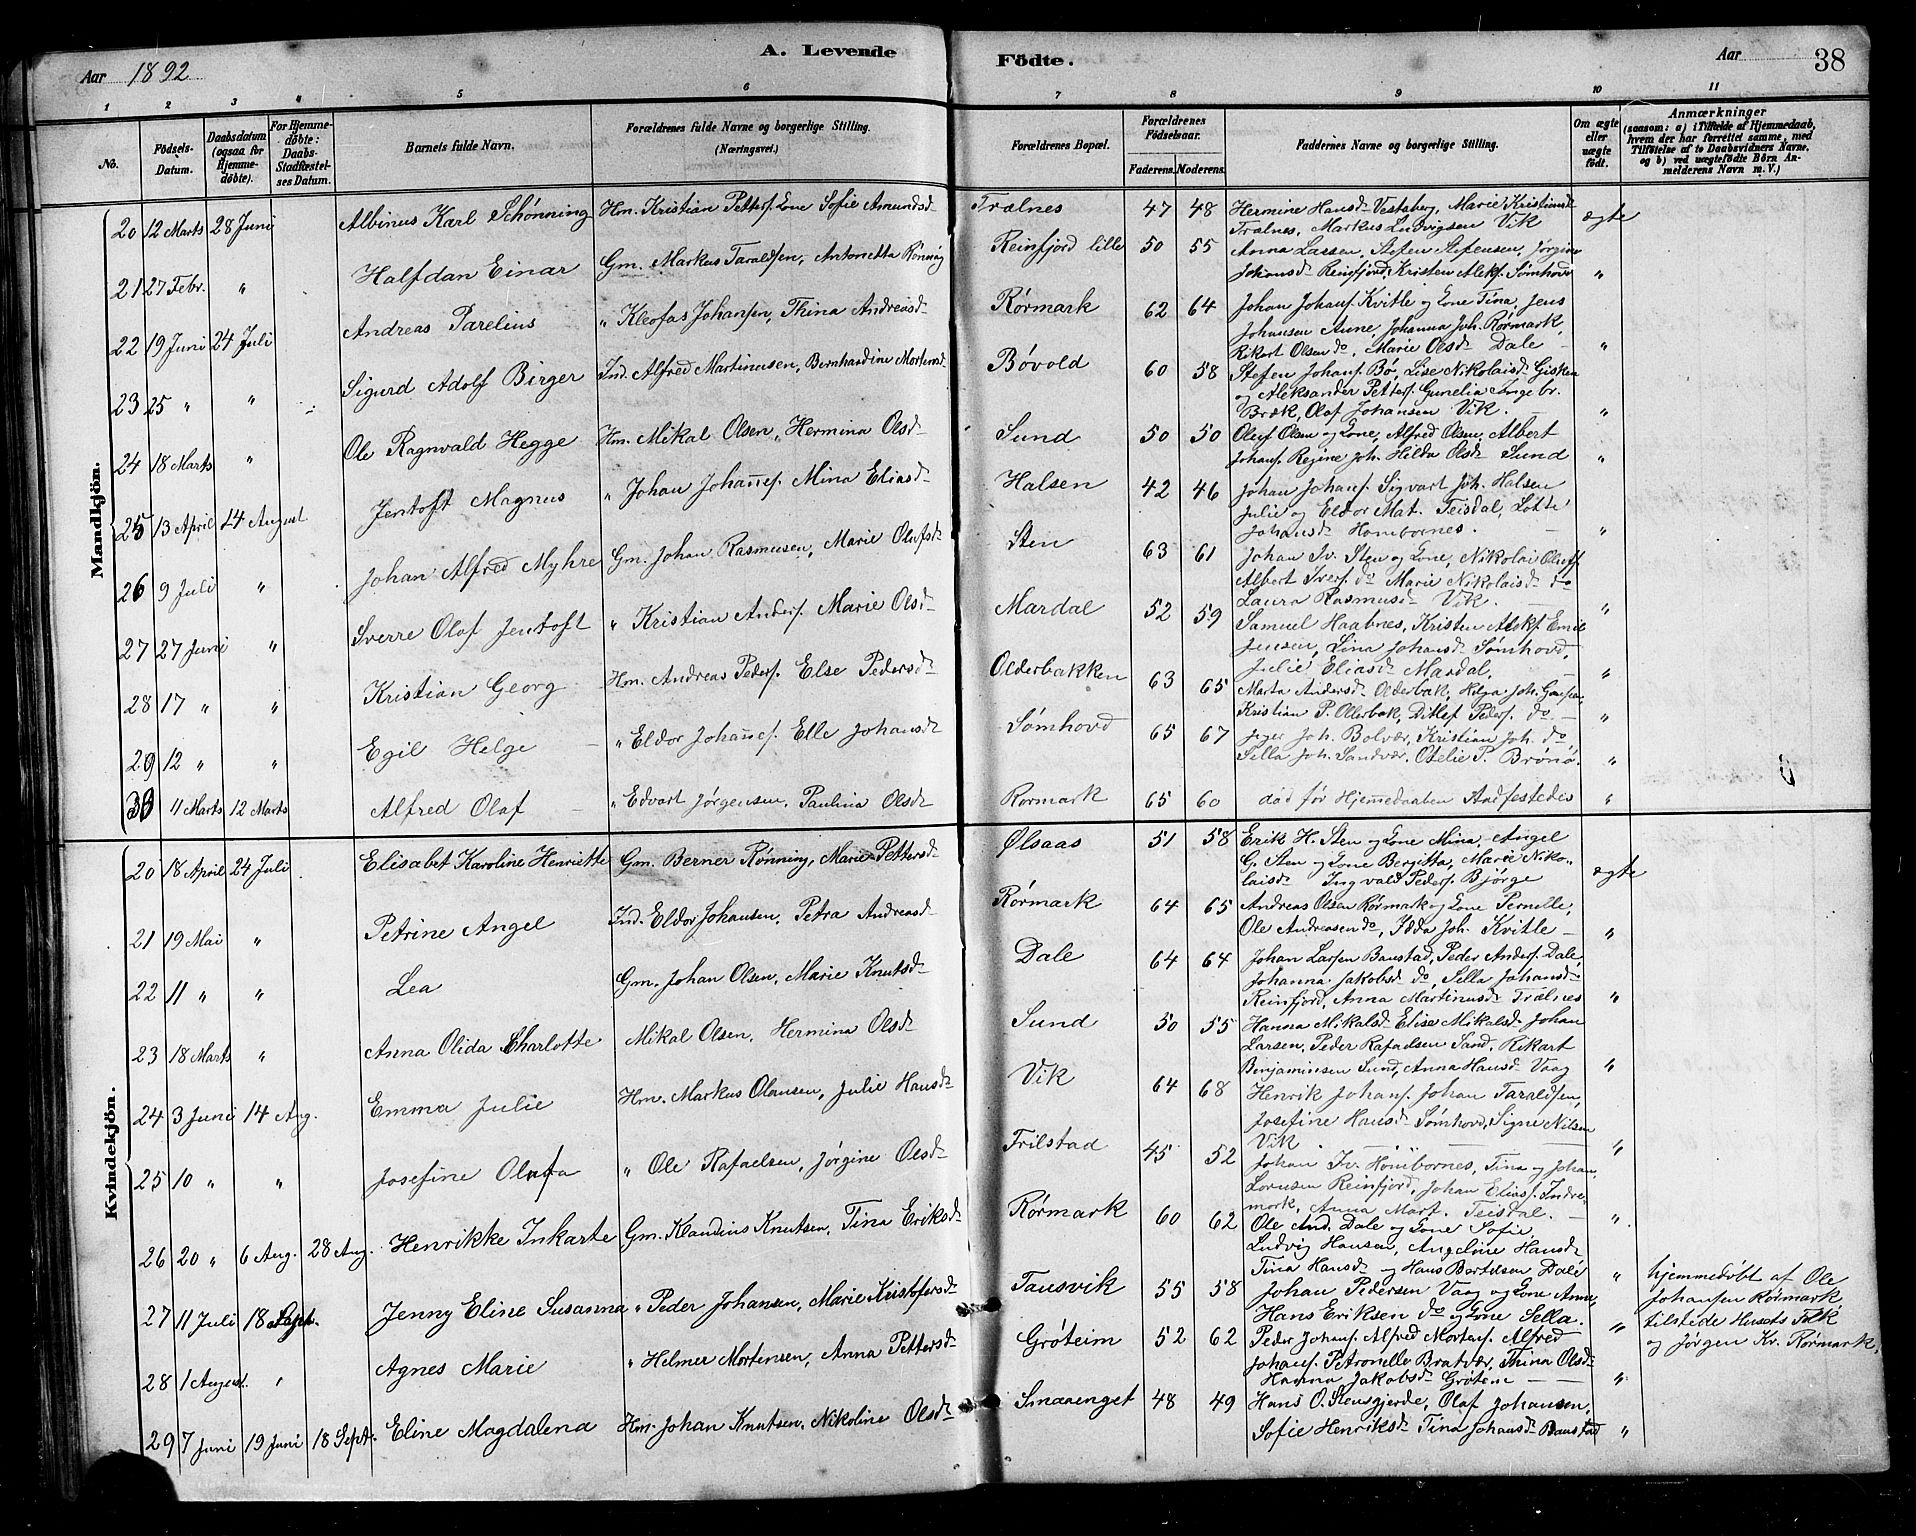 Aar 1892
A. Levende
Födte.
Aar
38
1 2 3 4 5 6 7 8 9 10 11
No.
Födsels-Datum.
Daabsdatum (ogsaa for Hjemmedøbte).
For Hjemmedøbte: Daabs-Stadfæstelses Datum.
Barnets fulde Navn.
Forældrenes fulde Navne og borgerlige Stilling. (Næringsvei.)
Forældrenes Bopæl.
Forældrenes Födselsaar.
Faderens. Moderens.
Faddernes Navne og borgerlige Stilling.
Om ægte eller uægte født.
Anmærkninger
(saasom: a) i Tilfælde af Hjemmedaab, hvem der har forrettet samme, med Tilføielse af to Daabsvidners Navne, og b) ved uægtefødte Börn Anmelderens Navn m. V.)
Mandkjön.
20 12 Marts 28 Juni Albinus Karl Schønning Hm. Kristian Petters. Kone Sofie Amundsd Trælnes 47 48 Hermine Hansd Vestaberg, Marie Kristiansd ægte
Trælnes, Markus Ludvigsen Vik
21 27 Febr. " Halfdan Einar Gm. Markus Taraldsen, Antonetta Rønnig Reinfjord lille 50 55 Anna Lassen, Stefen Stefensen, Jørgine
Johansd Reinfjord, Kristen Aleks. Sømhovd "
22 19 Juni 24 Juli Andreas Parelius " Kleofas Johansen, Thina Andreasd Rørmark 62 64 Johan Johans. Kvitle og Kone Tina, Jens
Johansen Aune, Johanna Joh. Rørmark,
Rikart Olsen do, Marie Olsd Dale "
23 25 " " Sigurd Adolf Birger Ind. Alfred Martinusen, Bernhardine Mortensd Bøvold 60 58 Stefen Johans. Bø, Lise Nikolaisd Gisken
og Aleksander Petters. Gunelia Ingebr.
Bræk, Olaf Johansen Vik "
24 18 Marts " Ole Ragnvald Hegge Hm. Mikal Olsen, Hermina Olsd Sund 50 50 Oluf Olsen og Kone, Alfred Olsen, Albert
Johans. Regine Joh. Hilda Olsd Sund "
25 13 April 14 August Jentoft Magnus " Johan Johannes. Mina Eliasd Halsen 42 46 Johan Johans. Sigvart Joh. Halsen
Julie og Eldor Mat. Teisdal, Lotte
Johansd Hombornes. "
26 9 Juli " Johan Alfred Myhre Gm. Johan Rasmusen, Marie Olufsd Sten 63 61 Johan Iv. Sten og Kone, Nikolai Oluff
Albert Ivers. do Marie Nikolaisd do
Laura Rasmusd Vik. "
27 27 Juni " Sverre Olaf Jentoft " Kristian Anders. Marie Olsd Mardal 52 59 Samuel Haabnes, Kristen Aleks. Emil
Jensen, Lina Johansd Sømhovd,
Julie Eliasd Mardal. "
28 17 " " Kristian Georg Hm. Andreas Peders. Else Pedersd Olderbakken 63 65 Marta Andersd Olderbak, Helga Joh.
Kristian P. Olderbak, Ditlef Peders. do "
29 12 " " Egil Helge " Eldor Johannes. Elle Johansd Sømhovd 65 67 Joh. Bolvær, Kristian Joh. do,
Sella Joh. Sandvær. Otelie P. Brønø. "
30 11 Marts 12 Marts Alfred Olaf " Edvart Jørgensen, Paulina Olsd Rørmark 65 60 død før Hjemmedaaben Stadfestedes "
Kvindekjön.
20 18 April 24 Juli Elisabet Karoline Henriette Gm. Berner Rønning, Marie Pettersd Ølsaas 51 58 Erik H. Sten og Kone Mina, Angel
G. Sten og Kone Bergitta, Marie Niko- ægte
laisd Ingvald Peders. Bjørge
21 19 Mai " Petrine Angel Ind. Eldor Johansen, Petra Andreasd Rørmark 64 65 Andreas Olsen Rørmark og Kone Pernelle,
Ole Andreasen do, Idda Joh. Kvitle "
22 11 " " Lea Gm. Johan Olsen, Marie Knutsd Dale 64 64 Johan Larsen Baustad, Peder Anders. Dale,
Johanna Jakobsd do, Sella Johansd
Reinfjord, Anna Martinusd Trælnes "
23 18 Marts " Anna Olida Charlotte Mikal Olsen, Hermina Olsd Sund 50 55 Hanna Mikalsd Elise Mikalsd Johan
Larsen, Peder Rafaelsen Sand, Rikart
Benjaminsen Sund, Anna Hansd Vaag "
24 3 Juni 14 Aug. Emma Julie Hm. Markus Olausen, Julie Hansd Vik 64 68 Henrik Johans. Johan Taraldsen,
Josefine Hansd Sømhovd, Signe Nilsen
Vik "
25 10 " " Josefine Olufa " Ole Rafaelsen, Jørgine Olsd Trilstad 45 52 Johan Iv. Hombornes, Tina og Johan
Lornsen Reinfjord, Johan Elias. Indre-
mork, Anna Mart. Teisdal. "
26 20 " 6 Aug. 28 Aug. Henrikke Inkarte Gm. Klaudius Knutsen, Tina Eriksd Rørmark 60 62 Ole And. Dale og Kone Sofie,
Ludvig Hansen, Angeline Hansd
Tina Hansd og Hans Bertelsen Dale " hjemmedøbt af Ole
Johansen Rørmark
tilstede Husets Folk
og Jørgen Kr. Rørmark.
27 11 Juli 18 Sept. Jenny Eline Susanna " Peder Johansen, Marie Kristofersd Tausvik 55 58 Johan Pedersen Vaag og Kone Anna,
Hans Eriksen do og Kone Sella. "
28 1 August " Agnes Marie " Helmer Mortensen, Anna Pettersd Grøteim 52 62 Peder Johans. Alfred Mortens. Alfred
Johans. Petronelle Bratvær, Thina Olsd
Hanna Jakobsd Grøtem "
29 7 Juni 19 Juni 18 Sept. Eline Magdalena Hm. Johan Knutsen, Nikoline Olsd Smaaenget 48 49 Hans O. Stensgjerde, Olaf Johansen,
Sofie Henriksd Tina Johansd Baustad "